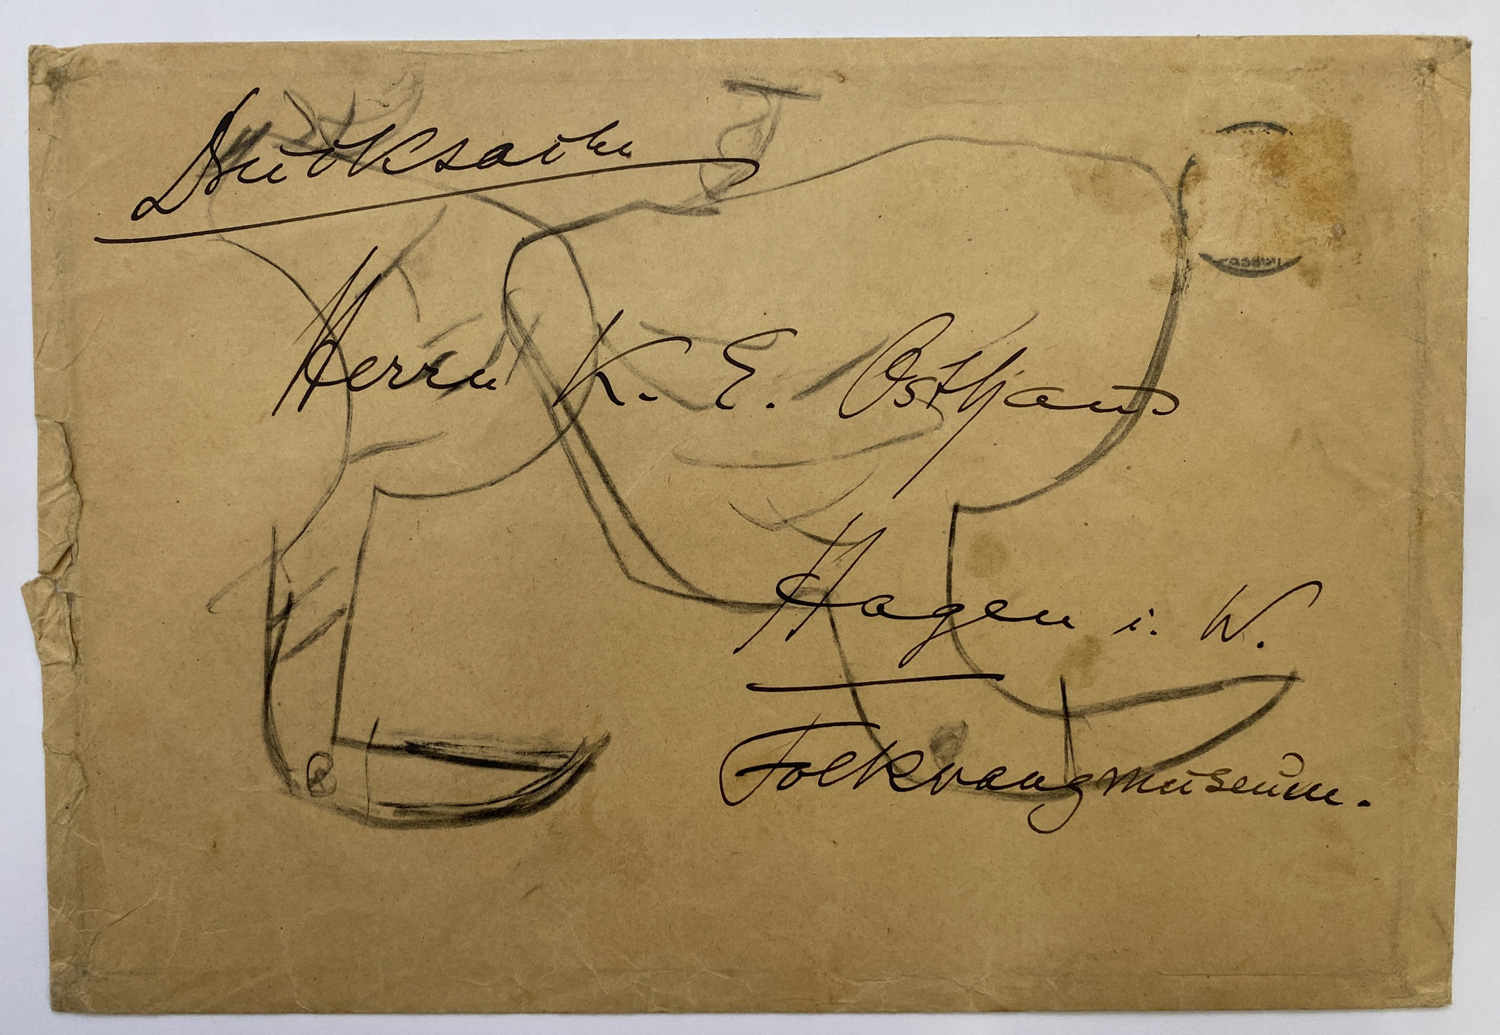 Drucksache
Herrn K. E. Osthaus
Hagen i. W.
Folkwangmuseum.